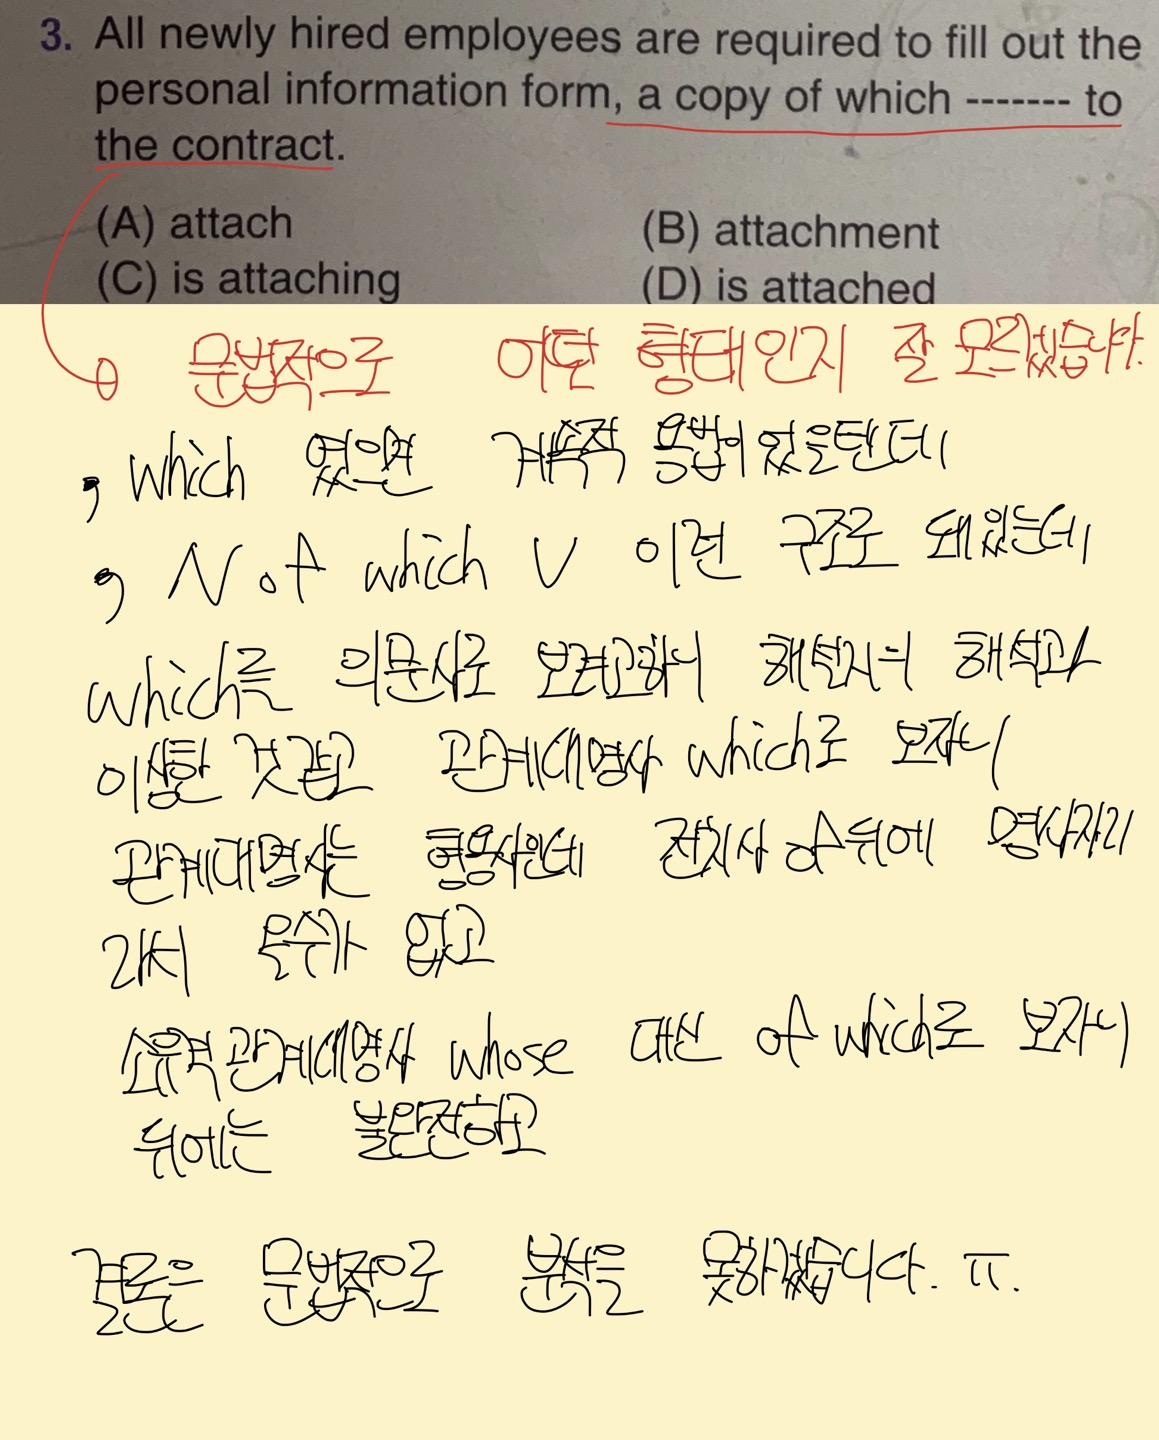 3. All newly hired employees are required to fill out the
personal information form, a copy of which ------- to
the contract.
(A) attach
(B) attachment
(C) is attaching
(D) is attached
문법적으로 어떤 형태인지 잘 모르겠습니다.
, which 였으면 계속적 용법이었을텐데
, N of which V 이런 구조로 돼있는데
which를 의문사로 보려고하니 해설지의 해석과
이상한 것 같고 관계대명사 which로 보자니
관계대명사는 형용사인데 전치사 of 뒤에 명사자리
라서 올수가 없고
소유격관계대명사 whose 대신 of which로 보자니
뒤에는 불완전하고
결론은 문법적으로 분석을 못하겠습니다. ㅠ.